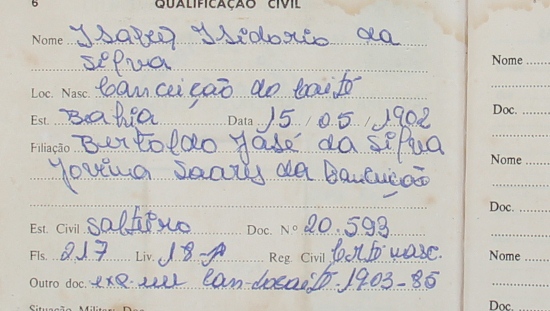 6 QUALIFICAÇÃO CIVIL
Nome Isidorio da
Silva
Loc. Nasc. Canceição do Caité
Est. Bahia Data 15 / 05 / 1902
Filiação Bertoldo José da Silva
Jovina Soares da Canceição
Est. Civil Salteiro Doc. Nº 20.593
Fls. 217 Liv. 18-A Reg. Civil Cert. nasc.
Outro doc. 1903-85
Situação Militar Doc.
Nome
Doc.
Nome
Doc.
Nome
Doc.